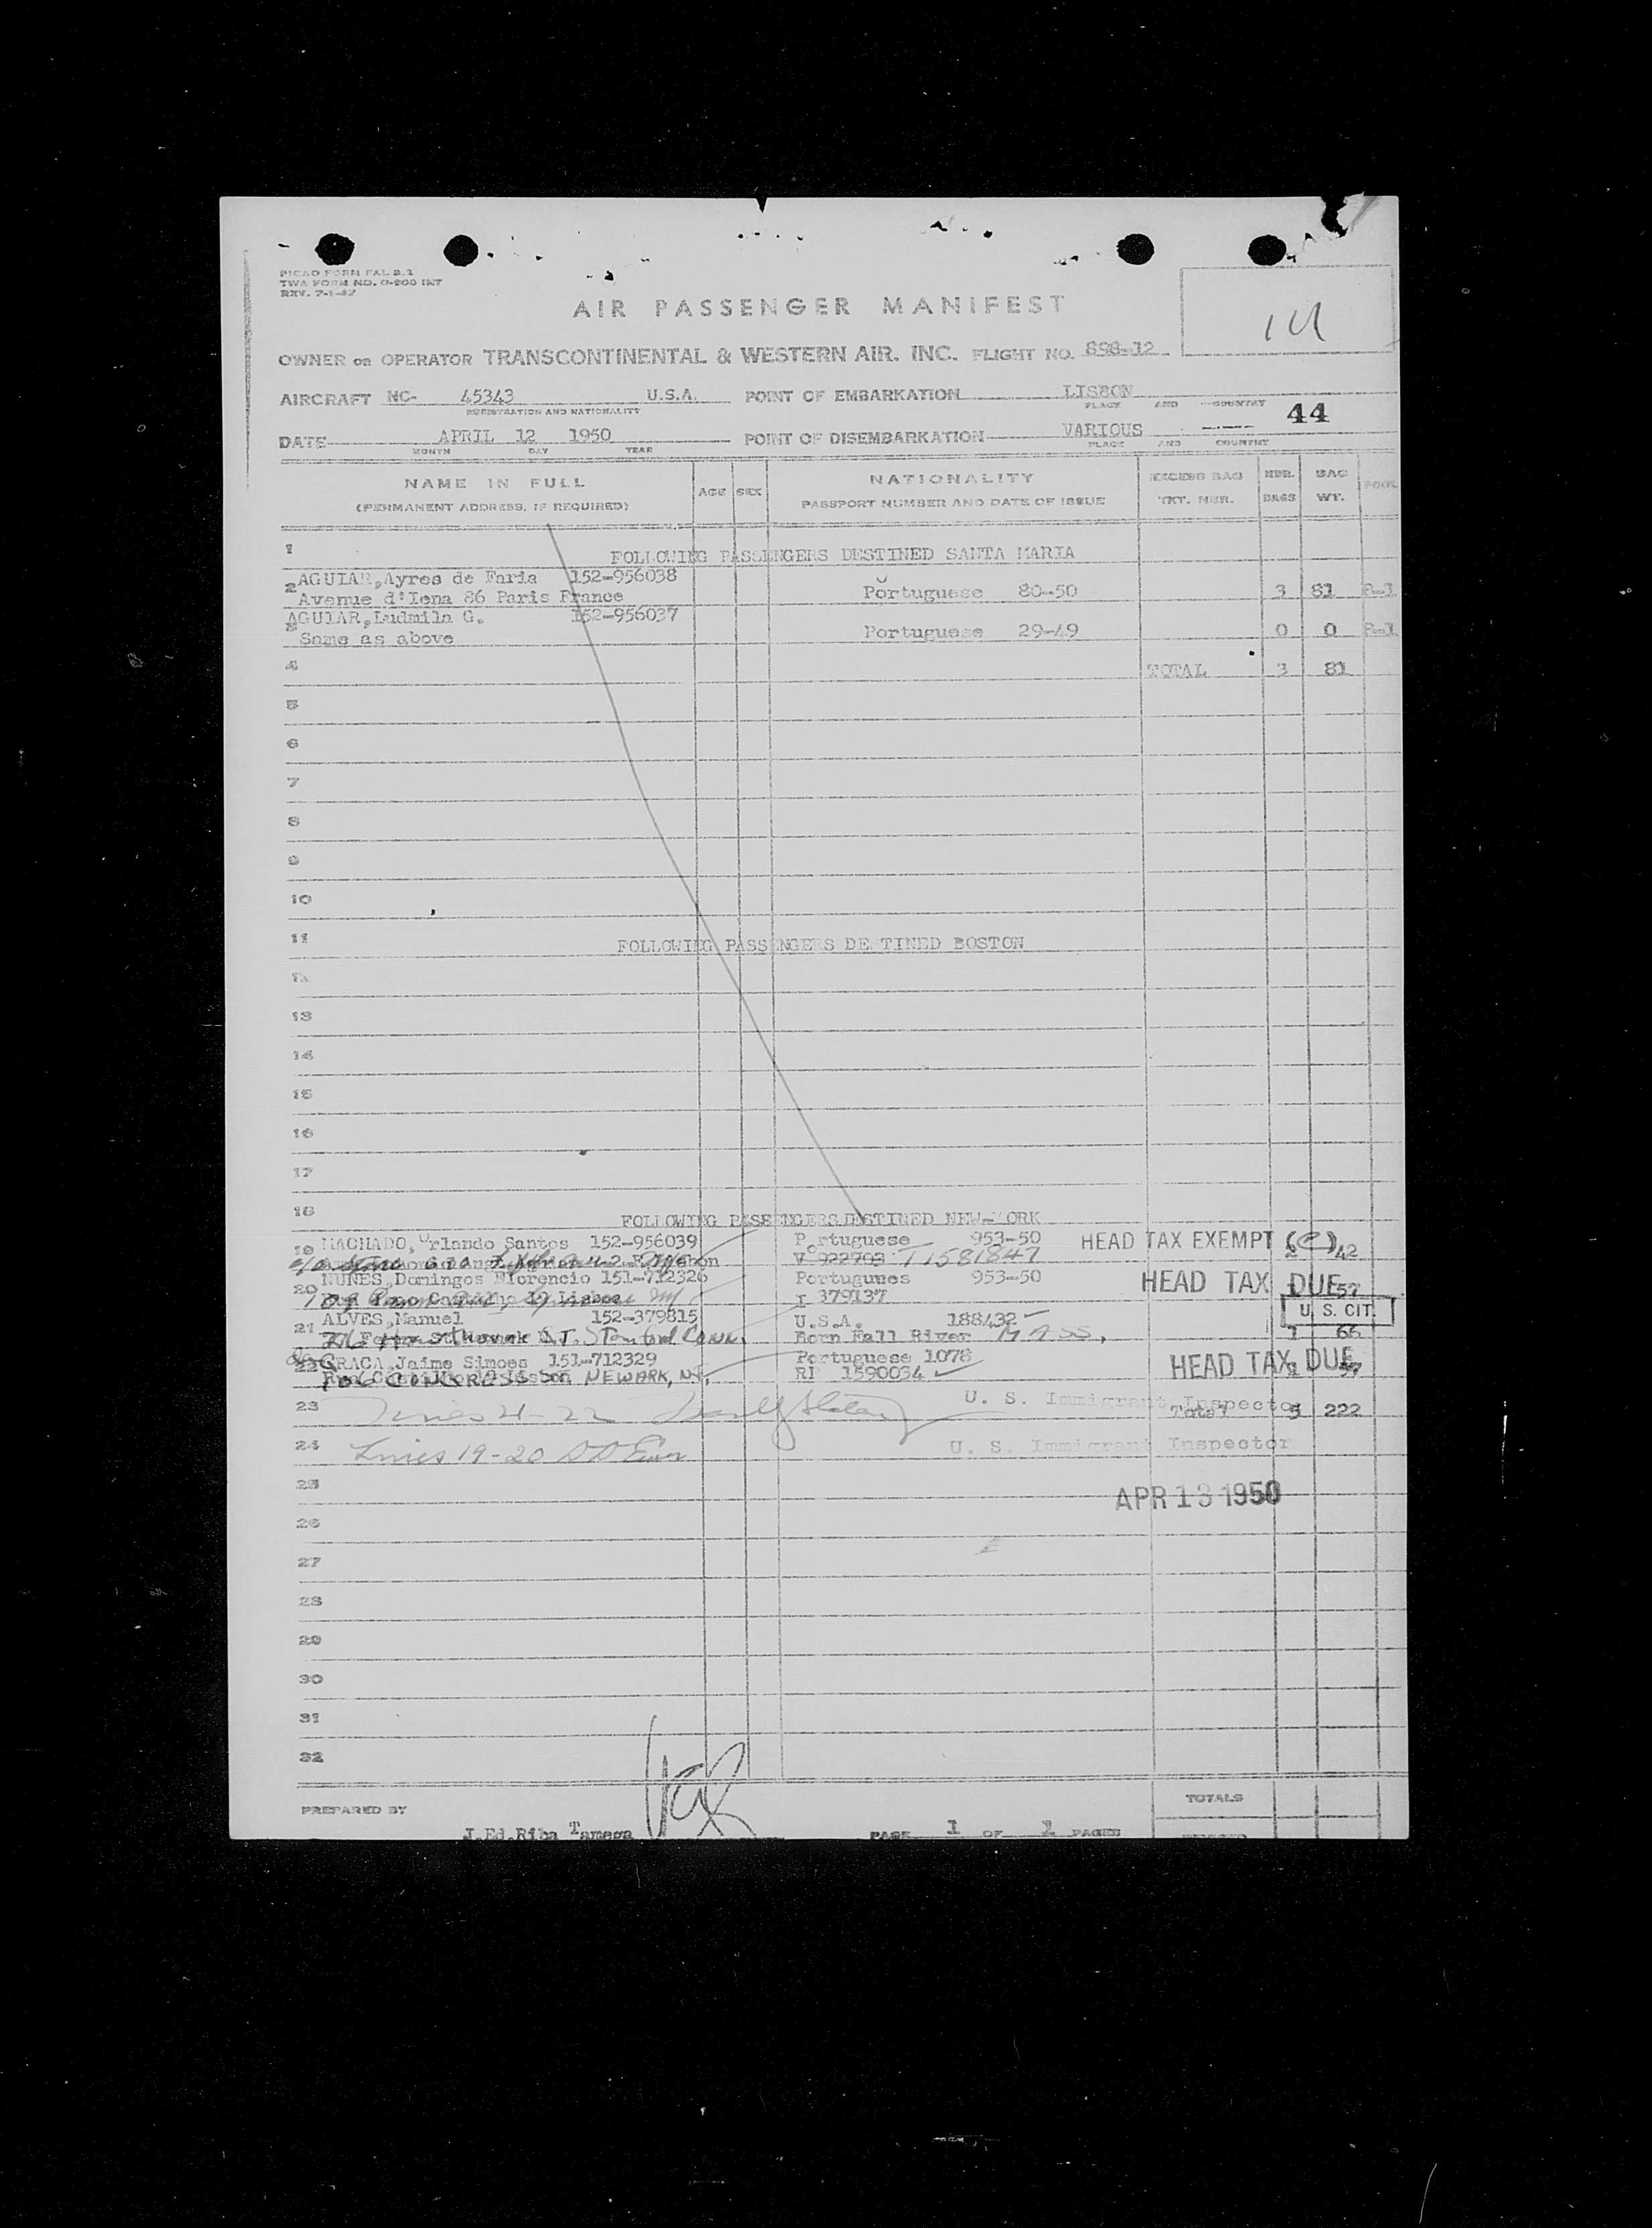 PICAO FORM FAL 2.1
TWA FORM NO. O-200 INT
REV. 7-1-47
AIR PASSENGER MANIFEST
OWNER OR OPERATOR TRANSCONTINENTAL & WESTERN AIR. INC. FLIGHT NO. 898-12
AIRCRAFT NC- 45343 U.S.A. POINT OF EMBARKATION LISBON
REGISTRATION AND NATIONALITY PLACE AND COUNTRY
44
DATE APRIL 12 1950 POINT OF DISEMBARKATION VARIOUS
MONTH DAY YEAR PLACE AND COUNTRY
NAME IN FULL AGE SEX NATIONALITY EXCESS BAG NBR. BAG POOL
(PERMANENT ADDRESS, IF REQUIRED) PASSPORT NUMBER AND DATE OF ISSUE TKT. NBR. BAGS WT.
1 FOLLOWING PASSENGERS DESTINED SANTA MARIA
2 AGUIAR,Ayres de Faria 152-956038
Avenue d'Iena 86 Paris France Portuguese 80-50 3 81
3 AGUIAR,Ludmila G. 152-956037
Same as above Portuguese 29-49 0 0
4 TOTAL 3 81
5
6
7
8
9
10
11 FOLLOWING PASSENGERS DESTINED BOSTON
12
13
14
15
16
17
18 FOLLOWING PASSENGERS DESTINED NEW-YORK
19 MACHADO, Orlando Santos 152-956039 Portuguese 953-50 HEAD TAX EXEMPT (C)
V 922793 T1581847 2 42
20 NUNES,Domingos Florencio 151-712326 Portuguues 953-50 HEAD TAX DUE
19 Lisboa I 379137 1 57
21 ALVES,Manuel 152-379815 U.S.A. 188432 U. S. CIT.
Stamford CONN. Born Fall River MASS, 1 66
22 GRACA,Jaime Simoes 151-712329 Portuguese 1078 HEAD TAX DUE
CONGRESS ST. NEWARK, NJ. RP 1590034 1 57
23 Lines 21-22 U. S. Immigrant Inspector Total 5 222
24 Lines 19-20 U. S. Immigrant Inspector
25 APR 13 1950
26
27
28
29
30
31
32
PREPARED BY TOTALS
J.Ed.Riba Tamega PAGE 1 OF 1 PAGES